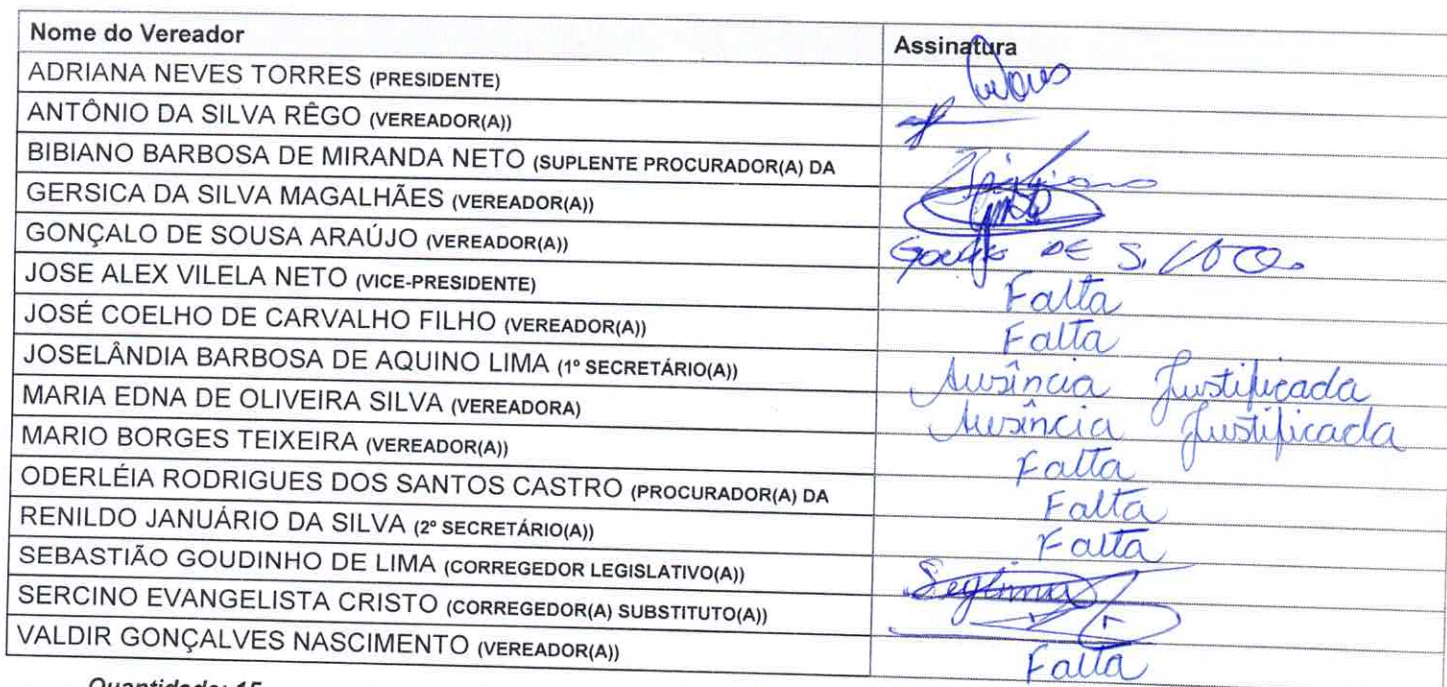 Nome do Vereador Assinatura
ADRIANA NEVES TORRES (PRESIDENTE)
ANTÔNIO DA SILVA RÊGO (VEREADOR(A))
BIBIANO BARBOSA DE MIRANDA NETO (SUPLENTE PROCURADOR(A) DA
GERSICA DA SILVA MAGALHÃES (VEREADOR(A))
GONÇALO DE SOUSA ARAÚJO (VEREADOR(A)) DE S.
JOSE ALEX VILELA NETO (VICE-PRESIDENTE) Falta
JOSÉ COELHO DE CARVALHO FILHO (VEREADOR(A)) Falta
JOSELÂNDIA BARBOSA DE AQUINO LIMA (1º SECRETÁRIO(A)) Ausência Justificada
MARIA EDNA DE OLIVEIRA SILVA (VEREADORA) Ausência Justificada
MARIO BORGES TEIXEIRA (VEREADOR(A)) Falta
ODERLÉIA RODRIGUES DOS SANTOS CASTRO (PROCURADOR(A) DA Falta
RENILDO JANUÁRIO DA SILVA (2º SECRETÁRIO(A)) Falta
SEBASTIÃO GOUDINHO DE LIMA (CORREGEDOR LEGISLATIVO(A))
SERCINO EVANGELISTA CRISTO (CORREGEDOR(A) SUBSTITUTO(A))
VALDIR GONÇALVES NASCIMENTO (VEREADOR(A)) Falta
Quantidade: 15